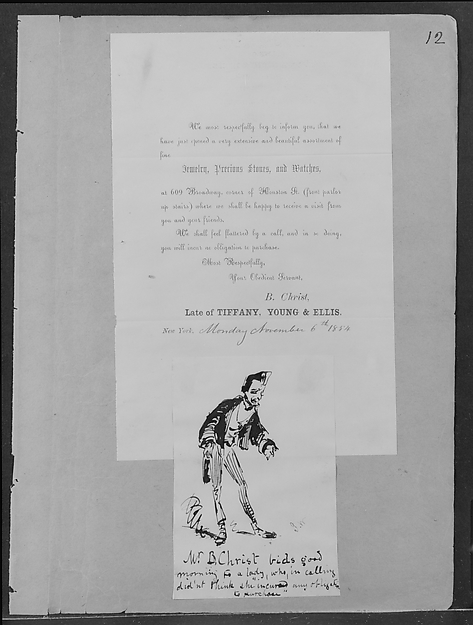 12
We most respectfully beg to inform you, that we
have just opened a very extensive and beautiful assortment of
fine
Jewelry, Precious Stones, and Watches,
at 609 Broadway, corner of Houston St. (front parlor
up stairs) where we shall be happy to receive a visit from
you and your friends.
We shall feel flattered by a call, and in so doing,
you will incur no obligation to purchase.
Most Respectfully,
Your Obedient Servant,
B. Christ,
Late of TIFFANY, YOUNG & ELLIS.
New York, Monday November 6th 1854
Mr B, Christ bids good
morning to a lady, who, in calling
did'nt think she incurred any
to purchase"